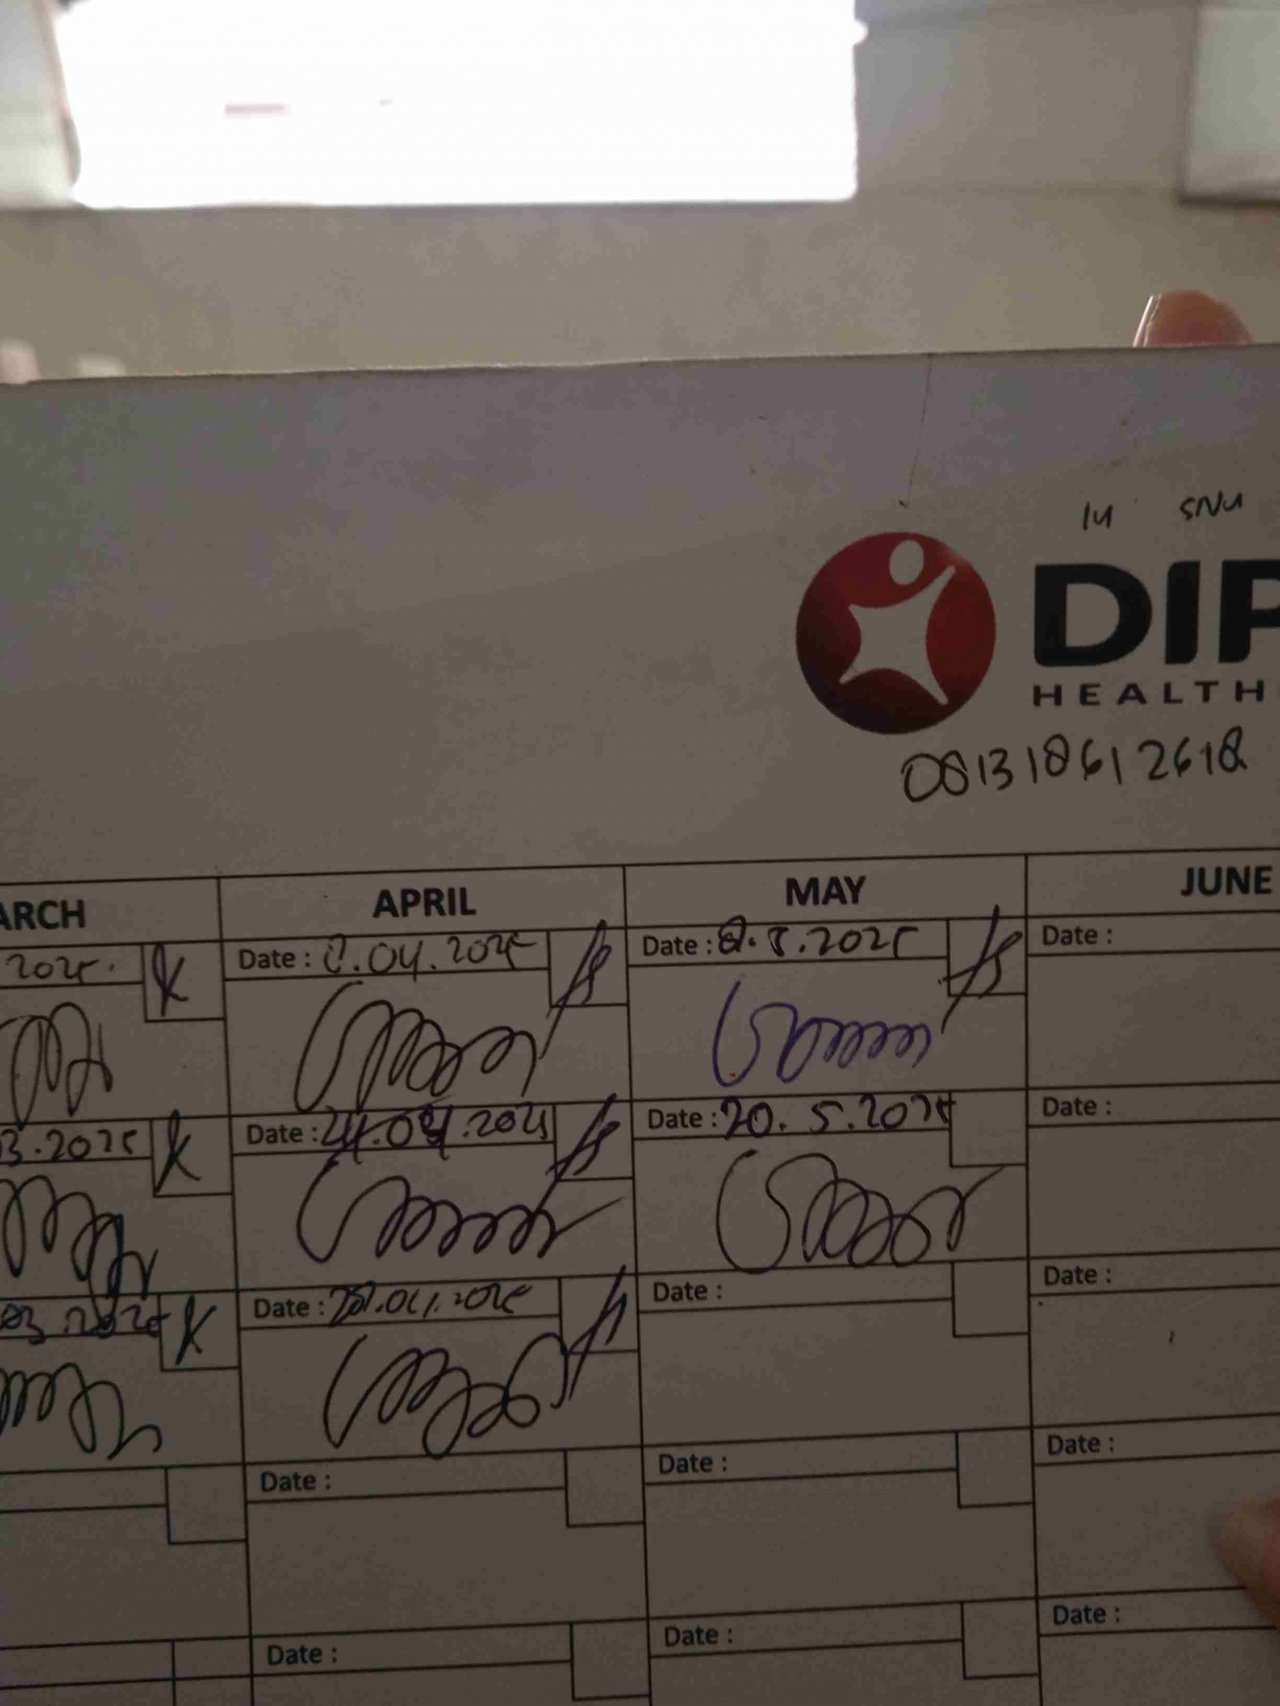 SNU
DIP
HEALTH
081318612618
ARCH APRIL MAY JUNE
2025. Date : 8.04.2025 Date : 8.5.2025 Date :
03.2025 Date : 24.04.2025 Date : 20.5.2025 Date :
03.2025 Date : 04.2025 Date : Date :
Date : Date : Date :
Date : Date : Date :